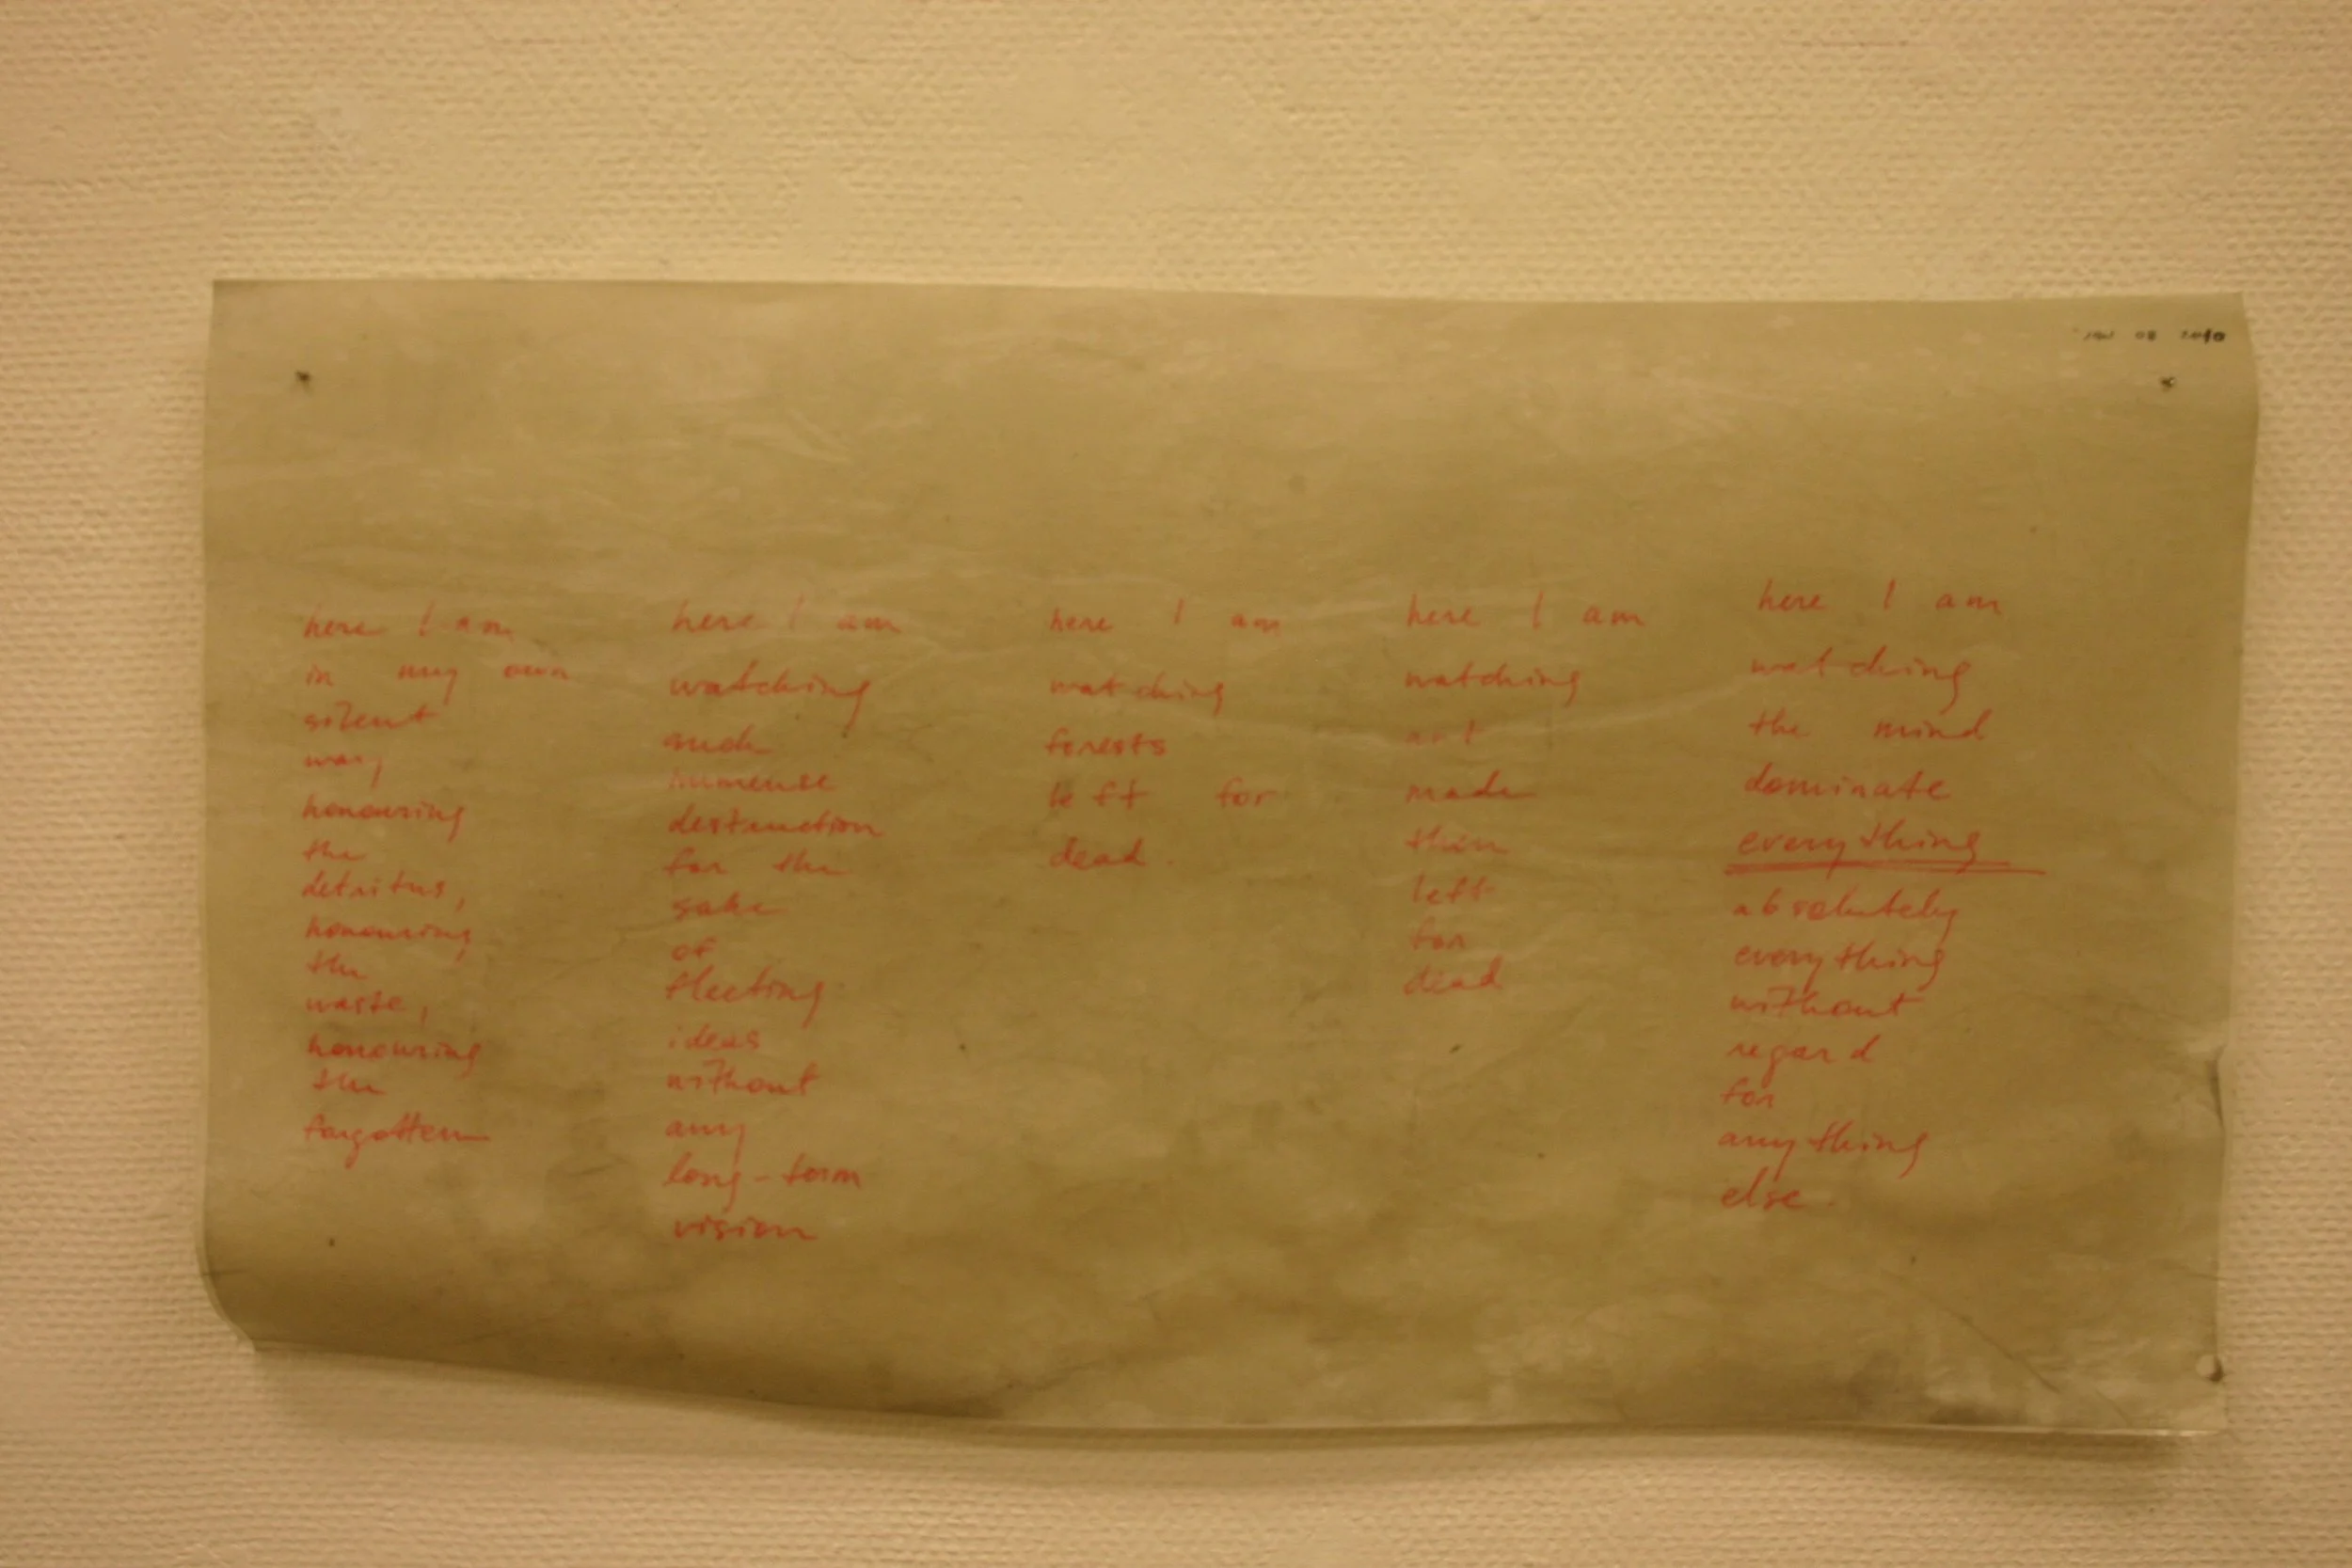 JAN 08 2010
here I am
in my own
silent
way
honouring
the
detritus,
honouring
the
waste,
honouring
the
forgotten
here I am
watching
such
immense
destruction
for the
sake
of
fleeting
ideas
without
any
long-term
vision
here I am
watching
forests
left for
dead.
here I am
watching
art
made
then
left
for
dead
here I am
watching
the mind
dominate
everything
absolutely
everything
without
regard
for
anything
else.